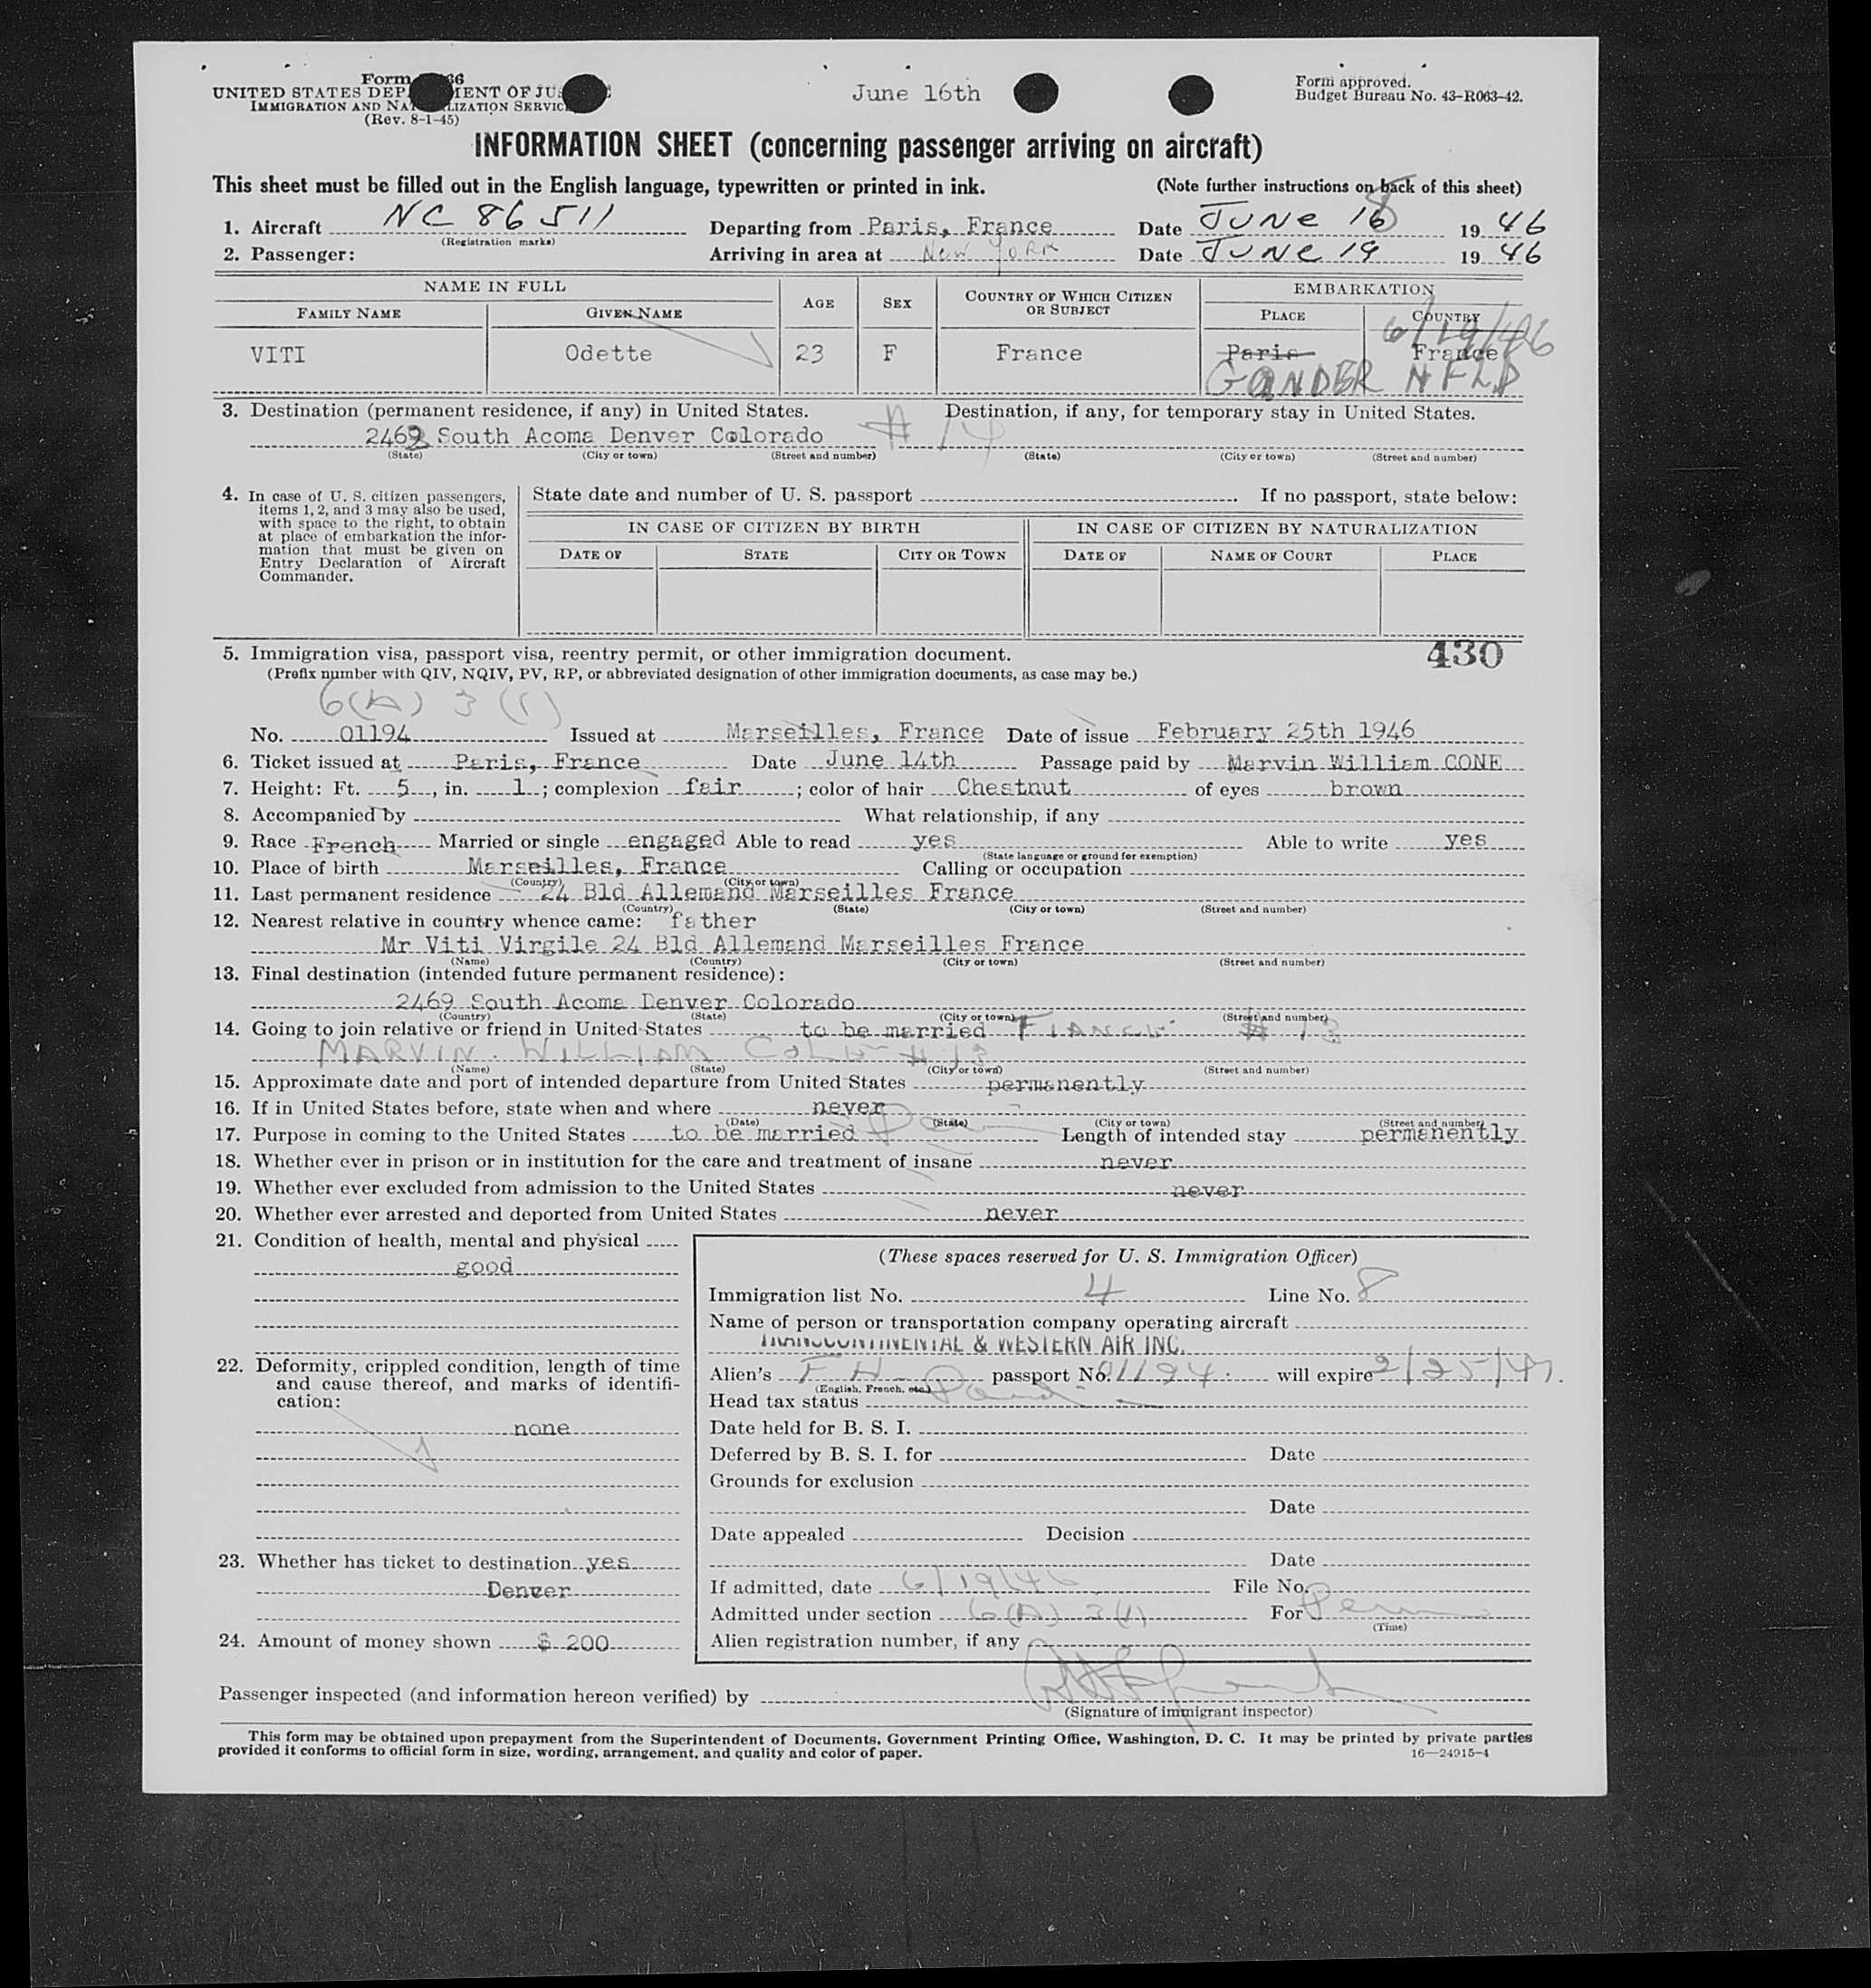 Form
UNITED STATES DEP MENT OF JUS
IMMIGRATION AND NA LIZATION SERVIC
(Rev. 8-1-45)
June 16th
Form approved.
Budget Bureau No. 43-R063-42.
INFORMATION SHEET (concerning passenger arriving on aircraft)
This sheet must be filled out in the English language, typewritten or printed in ink. (Note further instructions on back of this sheet)
1. Aircraft NC 86511 Departing from Paris, France Date JUNE 18 19 46
(Registration marks)
2. Passenger: Arriving in area at New York Date JUNE 19 19 46
NAME IN FULL AGE SEX COUNTRY OF WHICH CITIZEN OR SUBJECT EMBARKATION
FAMILY NAME GIVEN NAME PLACE COUNTRY
6/19/46
VITI Odette 23 F France Paris France
GANDER NFLD
3. Destination (permanent residence, if any) in United States. Destination, if any, for temporary stay in United States.
2469 South Acoma Denver Colorado # 14
(State) (City or town) (Street and number) (State) (City or town) (Street and number)
4. In case of U. S. citizen passengers, items 1, 2, and 3 may also be used, with space to the right, to obtain at place of embarkation the information that must be given on Entry Declaration of Aircraft Commander.
State date and number of U. S. passport . If no passport, state below:
IN CASE OF CITIZEN BY BIRTH IN CASE OF CITIZEN BY NATURALIZATION
DATE OF STATE CITY OR TOWN DATE OF NAME OF COURT PLACE
430
5. Immigration visa, passport visa, reentry permit, or other immigration document.
(Prefix number with QIV, NQIV, PV, RP, or abbreviated designation of other immigration documents, as case may be.)
6(A) 3 (1)
No. 01194 Issued at Marseilles, France Date of issue February 25th 1946
6. Ticket issued at Paris, France Date June 14th Passage paid by Marvin William CONE
7. Height: Ft. 5, in. 1; complexion fair; color of hair Chestnut of eyes brown
8. Accompanied by What relationship, if any
9. Race French Married or single engaged Able to read yes Able to write yes
(State language or ground for exemption)
10. Place of birth Marseilles, France Calling or occupation
(Country) (City or town)
11. Last permanent residence 24 Bld Allemand Marseilles France
(Country) (State) (City or town) (Street and number)
12. Nearest relative in country whence came: father
Mr Viti Virgile 24 Bld Allemand Marseilles France
(Name) (Country) (City or town) (Street and number)
13. Final destination (intended future permanent residence):
2469 South Acoma Denver Colorado
(Country) (State) (City or town) (Street and number)
14. Going to join relative or friend in United States to be married FIANCE # 13
MARVIN WILLIAM # 13
(Name) (State) (City or town) (Street and number)
15. Approximate date and port of intended departure from United States permanently
16. If in United States before, state when and where never
(Date) (State) (City or town) (Street and number)
17. Purpose in coming to the United States to be married Length of intended stay permanently
18. Whether ever in prison or in institution for the care and treatment of insane never
19. Whether ever excluded from admission to the United States never
20. Whether ever arrested and deported from United States never
21. Condition of health, mental and physical
good
22. Deformity, crippled condition, length of time and cause thereof, and marks of identification:
none
23. Whether has ticket to destination yes
Denver
24. Amount of money shown $ 200
(These spaces reserved for U. S. Immigration Officer)
Immigration list No. 4 Line No. 8
Name of person or transportation company operating aircraft
TRANSCONTINENTAL & WESTERN AIR INC.
Alien's passport No. 01194 will expire 2/25/47.
(English, French, etc.)
Head tax status
Date held for B. S. I.
Deferred by B. S. I. for Date
Grounds for exclusion
Date
Date appealed Decision
Date
If admitted, date 6/19/46 File No.
Admitted under section 6(A) 3(1) For Perm
(Time)
Alien registration number, if any
Passenger inspected (and information hereon verified) by
(Signature of immigrant inspector)
This form may be obtained upon prepayment from the Superintendent of Documents, Government Printing Office, Washington, D. C. It may be printed by private parties
provided it conforms to official form in size, wording, arrangement, and quality and color of paper. 16—24915-4